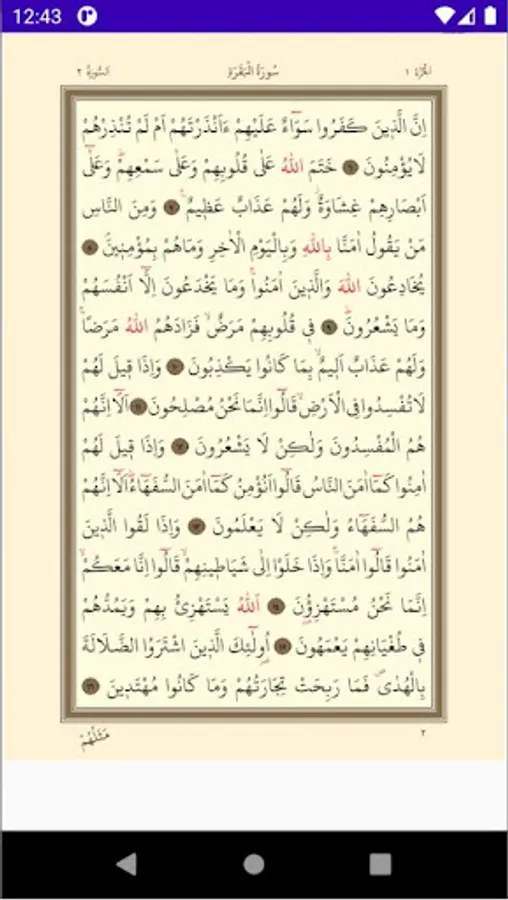 12:43
الجزء ١ سُورَةُ الْبَقَرَةِ السورة ٢
اِنَّ الَّذ۪ينَ كَفَرُوا سَوَٓاءٌ عَلَيْهِمْ ءَاَنْذَرْتَهُمْ اَمْ لَمْ تُنْذِرْهُمْ
لَا يُؤْمِنُونَ ﴿٦﴾ خَتَمَ اللّٰهُ عَلٰى قُلُوبِهِمْ وَعَلٰى سَمْعِهِمْۜ وَعَلٰٓى
اَبْصَارِهِمْ غِشَاوَةٌۘ وَلَهُمْ عَذَابٌ عَظ۪يمٌ۟ ﴿٧﴾ وَمِنَ النَّاسِ
مَنْ يَقُولُ اٰمَنَّا بِاللّٰهِ وَبِالْيَوْمِ الْاٰخِرِ وَمَا هُمْ بِمُؤْمِن۪ينَۢ ﴿٨﴾
يُخَادِعُونَ اللّٰهَ وَالَّذ۪ينَ اٰمَنُواۚ وَمَا يَخْدَعُونَ اِلَّٓا اَنْفُسَهُمْ
وَمَا يَشْعُرُونَۜ ﴿٩﴾ ف۪ي قُلُوبِهِمْ مَرَضٌۙ فَزَادَهُمُ اللّٰهُ مَرَضًاۚ
وَلَهُمْ عَذَابٌ اَل۪يمٌۙ بِمَا كَانُوا يَكْذِبُونَ ﴿١٠﴾ وَاِذَا ق۪يلَ لَهُمْ
لَا تُفْسِدُوا فِي الْاَرْضِۙ قَالُٓوا اِنَّمَا نَحْنُ مُصْلِحُونَ ﴿١١﴾ اَلَٓا اِنَّهُمْ
هُمُ الْمُفْسِدُونَ وَلٰكِنْ لَا يَشْعُرُونَ ﴿١٢﴾ وَاِذَا ق۪يلَ لَهُمْ
اٰمِنُوا كَمَٓا اٰمَنَ النَّاسُ قَالُٓوا اَنُؤْمِنُ كَمَٓا اٰمَنَ السُّفَهَٓاءُۜ اَلَٓا اِنَّهُمْ
هُمُ السُّفَهَٓاءُ وَلٰكِنْ لَا يَعْلَمُونَ ﴿١٣﴾ وَاِذَا لَقُوا الَّذ۪ينَ
اٰمَنُوا قَالُٓوا اٰمَنَّاۚ وَاِذَا خَلَوْا اِلٰى شَيَاط۪ينِهِمْۙ قَالُٓوا اِنَّا مَعَكُمْۙ
اِنَّمَا نَحْنُ مُسْتَهْزِؤُ۫نَ ﴿١٤﴾ اَللّٰهُ يَسْتَهْزِئُ بِهِمْ وَيَمُدُّهُمْ
ف۪ي طُغْيَانِهِمْ يَعْمَهُونَ ﴿١٥﴾ اُو۬لٰٓئِكَ الَّذ۪ينَ اشْتَرَوُا الضَّلَالَةَ
بِالْهُدٰىۖ فَمَا رَبِحَتْ تِجَارَتُهُمْ وَمَا كَانُوا مُهْتَد۪ينَ ﴿١٦﴾
٢ مَثَلُهُمْ